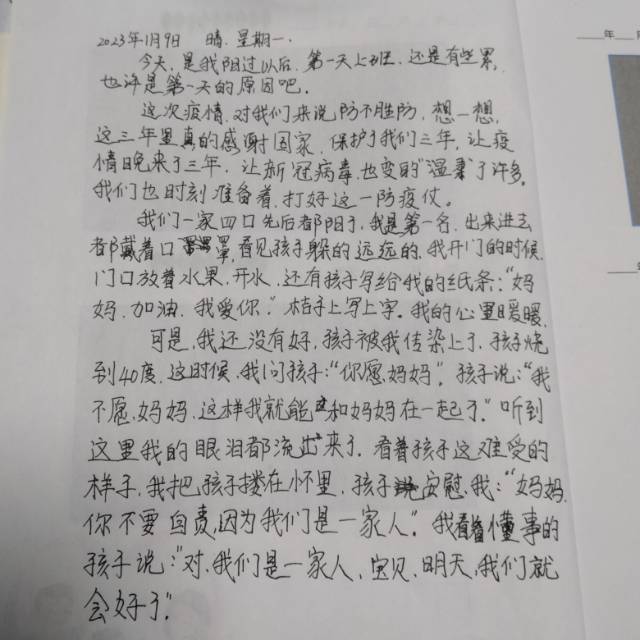 2023年1月9日 晴.星期一.
今天,是我阳过以后,第一天上班,还是有些累,
也许是第一天的原因吧.
这次疫情,对我们来说防不胜防,想一想,
这三年里真的感谢国家,保护了我们三年,让疫
情晚来了三年,让新冠病毒也变的"温柔"了许多,
我们也时刻准备着,打好这一防疫仗.
我们一家四口先后都阳了,我是第一名,出来进去
都戴着口罩,看见孩子躲的远远的,我开门的时候,
门口放着水果,开水,还有孩子写给我的纸条:"妈
妈,加油,我爱你."桔子上写上字.我的心里暖暖,
可是,我还没有好,孩子被我传染上了,孩子烧
到40度,这时候,我问孩子:"你愿妈妈".孩子说:"我
不愿,妈妈,这样我就能和妈妈在一起了."听到
这里我的眼泪都流出来了.看着孩子这难受的
样子,我把孩子搂在怀里,孩子安慰我:"妈妈
你不要自责,因为我们是一家人".我看着懂事的
孩子说:"对,我们是一家人,宝贝,明天,我们就
会好了."
年
月
一